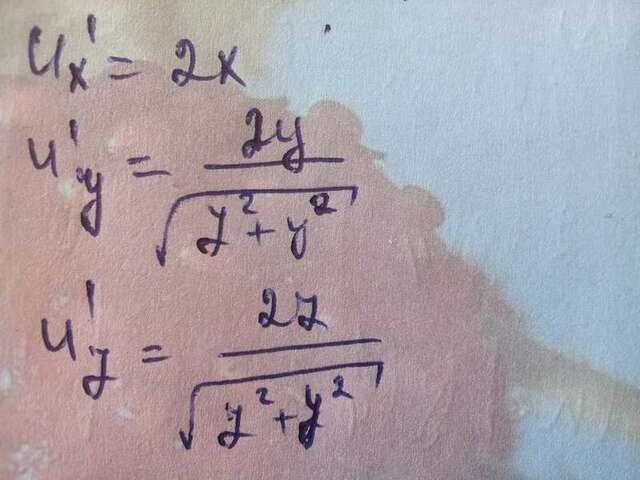 u'ₓ = 2x
u'_y = 2y / √(z² + y²)
u'_z = 2z / √(z² + y²)